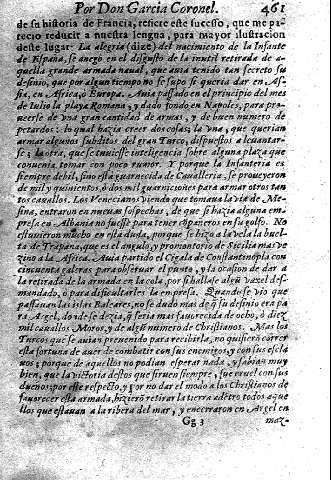 Por Don Garcia Coronel. 461
de su historia de Francia, refiere este sucesso, que me pa-
recio reducir a nuestra lengua, para mayor ilustracion
deste lugar. La alegria (dize) del nacimiento de la Infante
de España, se anegò en el disgusto de la inutil retirada de a-
quella grande armada naual, que auia tenido tan secreto su
desinio, que por algun tiempo no se supo si queria dar en As-
sia, en Africa, ò Europa. Auia passado en el principio del mes
de Iulio la playa Romana, y dado fondo en Napoles, para pro-
ueerse de vna gran cantidad de armas, y de buen numero de
petardos: lo qual hazia creer dos cosas; la vna, que querian
armar algunos subditos del gran Turco, dispuestos a leuantar-
se; la otra, que se tenia inteligencia sobre alguna plaça que
conuenia tomar con poco rumor. I porque la Infanteria es
siempre debil, sino està guarnecida de Caualleria, se proueyeron
de mil y quinientos, ò dos mil guarniciones para armar otros tan
tos cauallos. Los Venecianos viendo que tomaua la via de Me-
sina, entraron en nueuas sospechas, de que si hazia alguna em-
presa en Albania no fuesse para tener compañeros en su golfo. No
estuuieron mucho en esta duda, porque se hizo a la vela la buel-
ta de Trapana, que es el angulo, y promontorio de Sicilia mas ve
zino a la Africa. Auia partido el Cigala de Constantinopla con
cincuenta galeras para obseruar el puesto, y la ocasion de dar a
la retirada de la armada en la cola, por si hallasse algun vaxel des-
mandado, ò para dificultarles la empresa. Quando se viò que
passauan las islas Baleares, no se dudò mas de q̃ su desinio era pa
ra Argel, donde se dezia, q̃ seria mas fauorecida de ocho, ò diez
mil cauallos Moros, y de algũ numero de Christianos. Mas los
Turcos que se auian preuenido para recibirla, no quisierõ correr
esta fortuna de auer de combatir con sus enemigos, y con sus escla
uos; porque de aquellos no podian esperar nada, y sabian muy
bien, que la vitoria destos que siruen siempre, fue cruel con sus
dueños; por este respecto, y por no dar el modo a los Christianos de
fauorecer esta armada, hizierõ retirar la tierra adẽtro todos aque
llos que estauan a la ribera del mar, y encerraron en Argel en
Gg 3 maz-